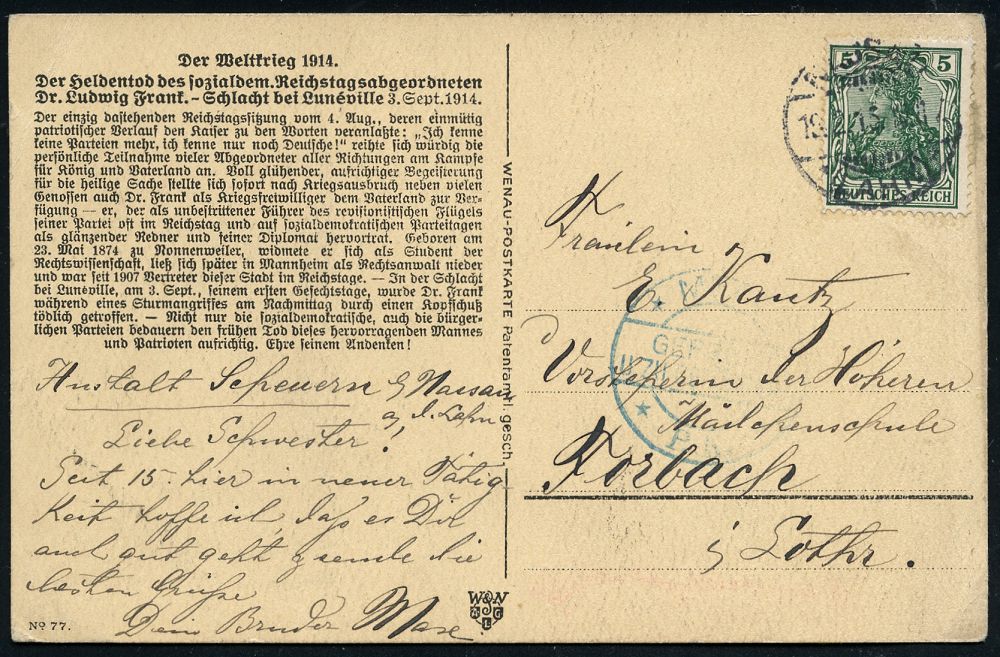 Der Weltkrieg 1914.
Der Heldentod des sozialdem. Reichstagsabgeordneten
Dr. Ludwig Frank. - Schlacht bei Lunéville 3. Sept. 1914.
Der einzig dastehenden Reichstagssitzung vom 4. Aug., deren einmütig
patriotischer Verlauf den Kaiser zu den Worten veranlaßte: „Ich kenne
keine Parteien mehr, ich kenne nur noch Deutsche!" reihte sich würdig die
persönliche Teilnahme vieler Abgeordneter aller Richtungen am Kampfe
für König und Vaterland an. Voll glühender, aufrichtiger Begeisterung
für die heilige Sache stellte sich sofort nach Kriegsausbruch neben vielen
Genossen auch Dr. Frank als Kriegsfreiwilliger dem Vaterland zur Ver-
fügung — er, der als unbestrittener Führer des revisionistischen Flügels
seiner Partei oft im Reichstag und auf sozialdemokratischen Parteitagen
als glänzender Redner und feiner Diplomat hervortrat. Geboren am
23. Mai 1874 zu Nonnenweiler, widmete er sich als Student der
Rechtswissenschaft, ließ sich später in Mannheim als Rechtsanwalt nieder
und war seit 1907 Vertreter dieser Stadt im Reichstage. — In der Schlacht
bei Lunéville, am 3. Sept., seinem ersten Gefechtstage, wurde Dr. Frank
während eines Sturmangriffes am Nachmittag durch einen Kopfschuß
tödlich getroffen. — Nicht nur die sozialdemokratische, auch die bürger-
lichen Parteien bedauern den frühen Tod dieses hervorragenden Mannes
und Patrioten aufrichtig. Ehre seinem Andenken!
Anstalt Scheuern b Nassau
a. d. Lahn
Liebe Schwester!
Seit 15. hier in neuer Tätig
keit hoffe ich, daß es Dir
auch gut geht & sende die
besten Grüße
Dein Bruder Max.
No 77.
W&N
WENAU-POSTKARTE Patentamtl. gesch.
5 5
DEUTSCHES REICH
Fräulein
E. Kautz
Vorsteherin der Höheren
Mädchenschule
Forbach
i/ Lothr.